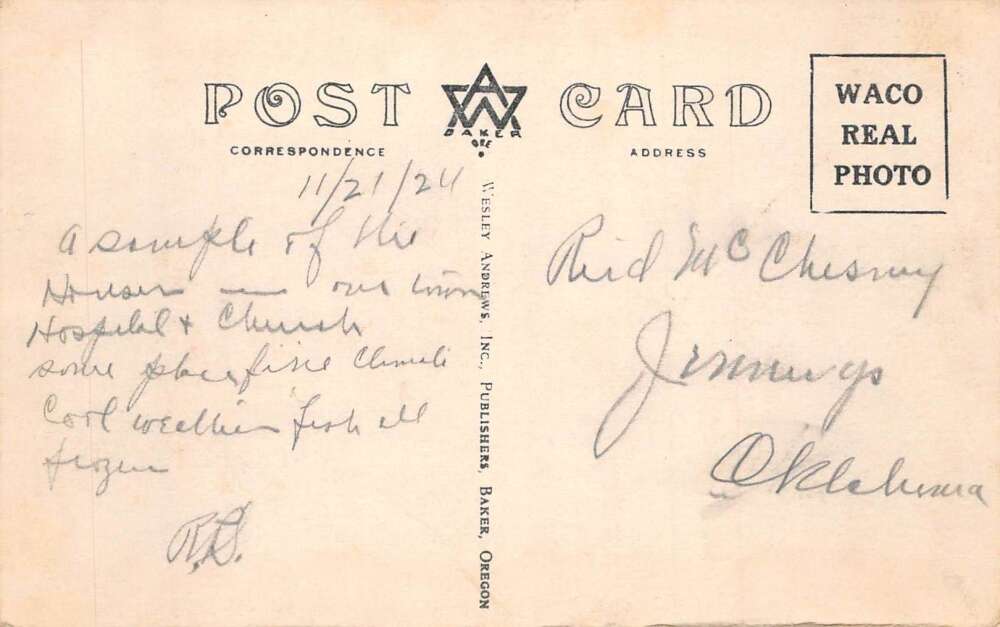 POST CARD
AW
BAKER
ORE
CORRESPONDENCE
ADDRESS
WACO
REAL
PHOTO
11/21/24
A sample of the
Houses in our town
Hospital & Church
some place fine Climate
Cool weather fish all
frozen
R.D.
WESLEY ANDREWS, INC., PUBLISHERS, BAKER, OREGON
Reid McChesney
Jennings
Oklahoma